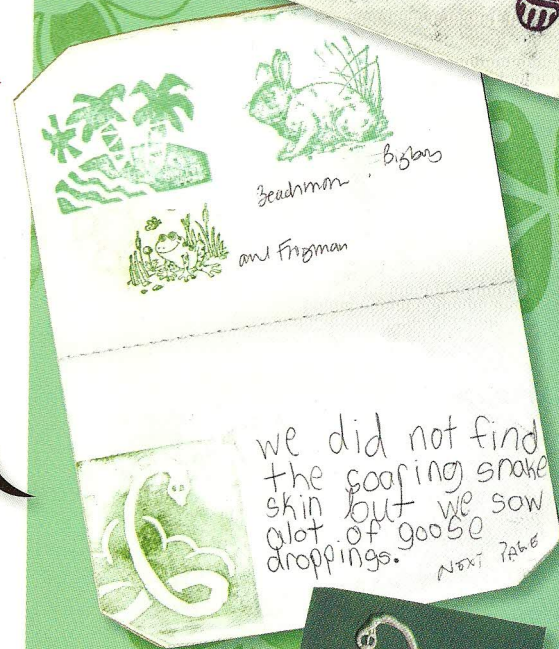 Beachmon,
and Frogman
we did not find
the soaring snake
skin but we saw
alot of goose
droppings.
NEXT PAGE